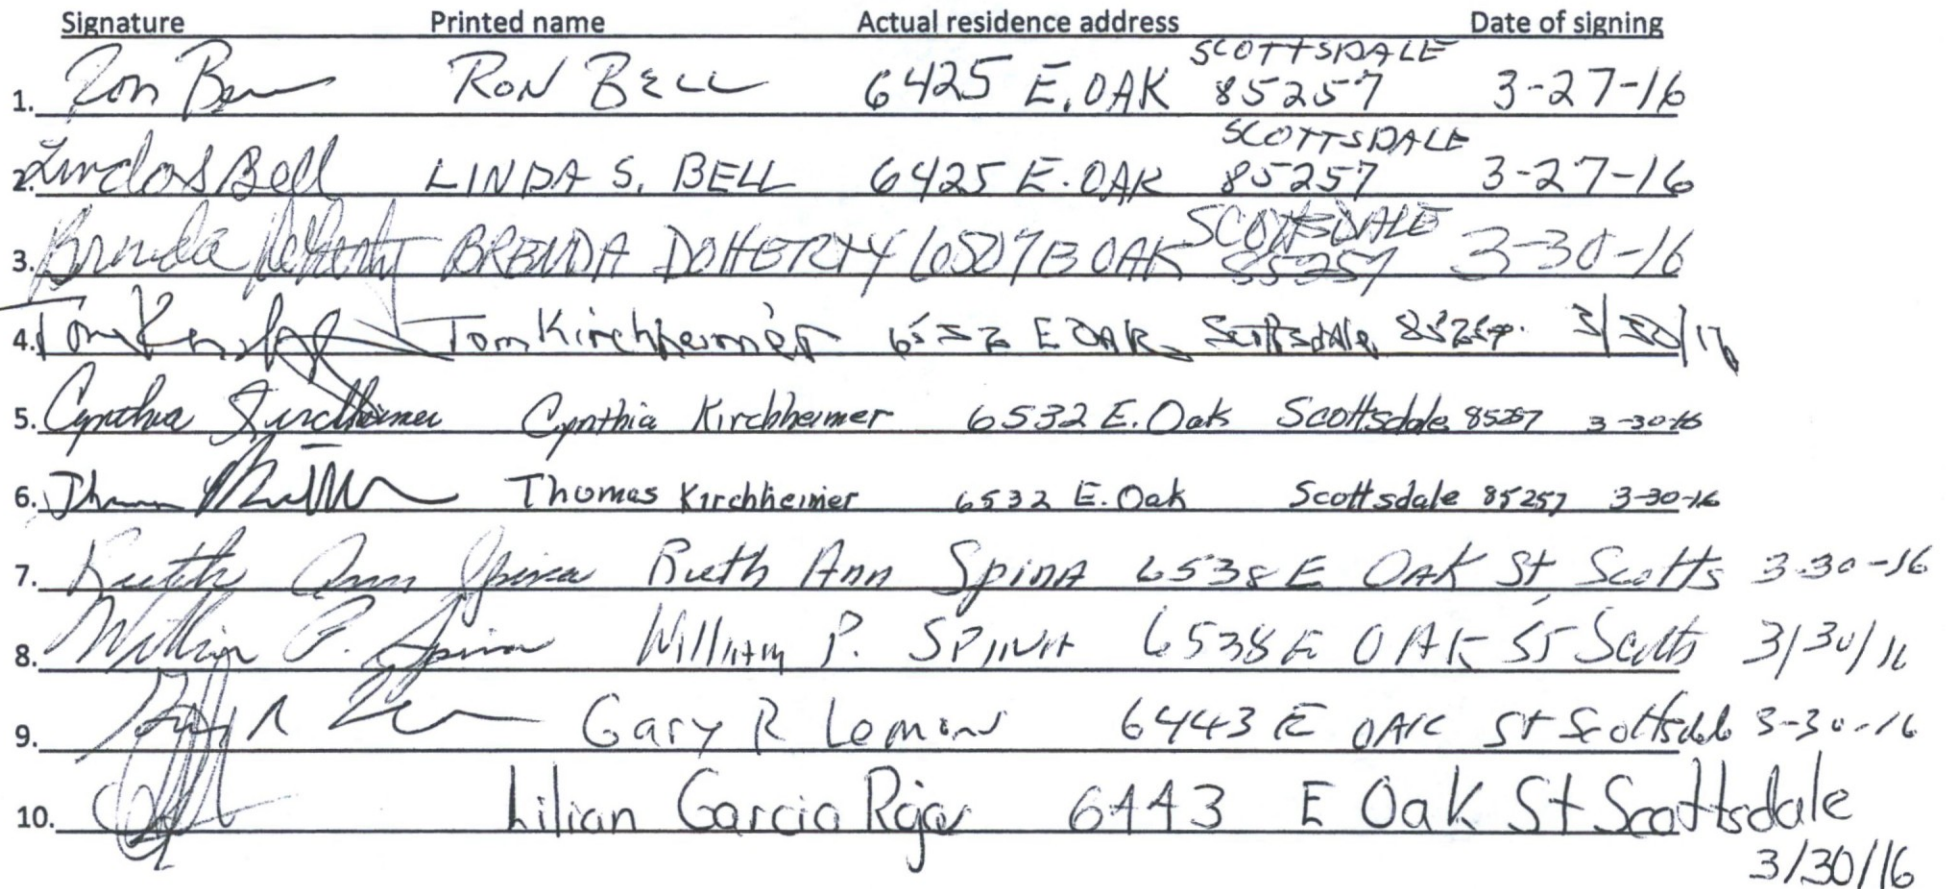 Signature Printed name Actual residence address Date of signing
1. Ron Bell RON BELL 6425 E. OAK SCOTTSDALE 85257 3-27-16
2. Linda S Bell LINDA S. BELL 6425 E. OAK SCOTTSDALE 85257 3-27-16
3. Brenda Doherty BRENDA DOHERTY 6507 E OAK SCOTTSDALE 85257 3-30-16
4. Tom Kirchheimer 6532 E OAK Scottsdale 85257 3/30/16
5. Cynthia Kirchheimer Cynthia Kirchheimer 6532 E. Oak Scottsdale 85257 3-30-16
6. Thomas Kirchheimer 6532 E. Oak Scottsdale 85257 3-30-16
7. Ruth Ann Spina Ruth Ann Spina 6538 E OAK St Scotts 3-30-16
8. William P. Spina William P. SPINA 6538 E OAK ST Scotts 3/30/16
9. Gary R Lemon 6443 E OAK St Scottsdale 3-30-16
10. Lilian Garcia Rojas 6443 E Oak St Scottsdale
3/30/16